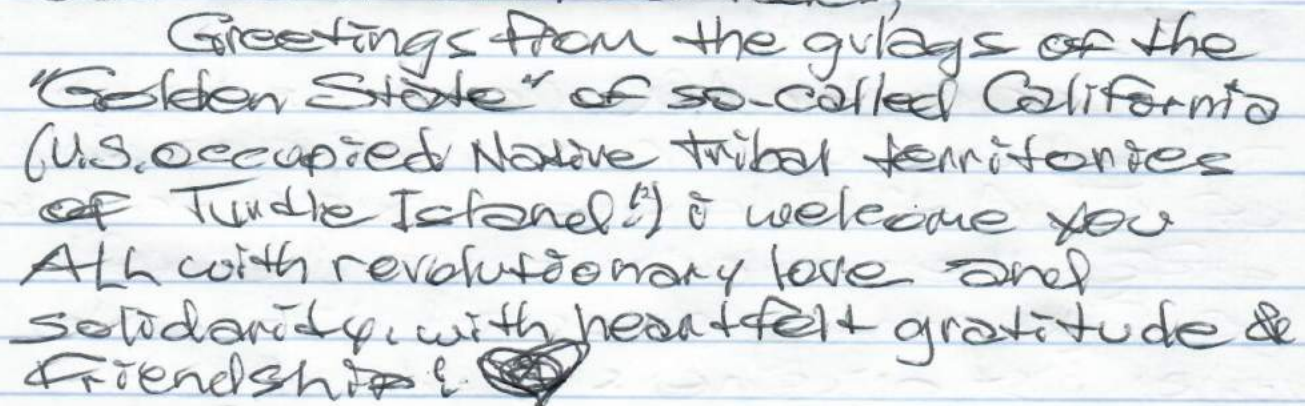 Greetings from the gulags of the
"Golden State" of so-called California
(U.S. occupied Native tribal territories
of Turtle Island!) i welcome you
ALL with revolutionary love and
solidarity, with heartfelt gratitude &
Friendship!